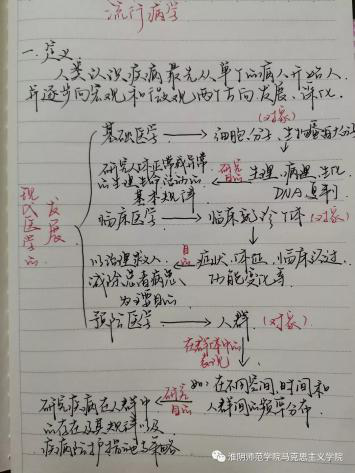 流行病学
一.定义
人类认识疾病最先从单个的病人开始入,
并逐步向宏观和微观两个方向发展、深化.
现代医学的发展
(对象)
基础医学 → 细胞、分子、生物
研究人体正常或异常
的生理生命活动的
基本规律
研究
目的
生理、病理、生化
DNA
临床医学 → 临床就诊个体 (对象)
以治理病人,
减除患者病患
为主要目的
目的
症状、体征、临床
功能变化等
预防医学 → 人群 (对象)
在群体中的
表现
如: 在不同空间、时间和
人群间的频率分布.
研究
目的
研究疾病在人群中
的存在及其规律以及
疾病防护措施与策略
淮阴师范学院马克思主义学院